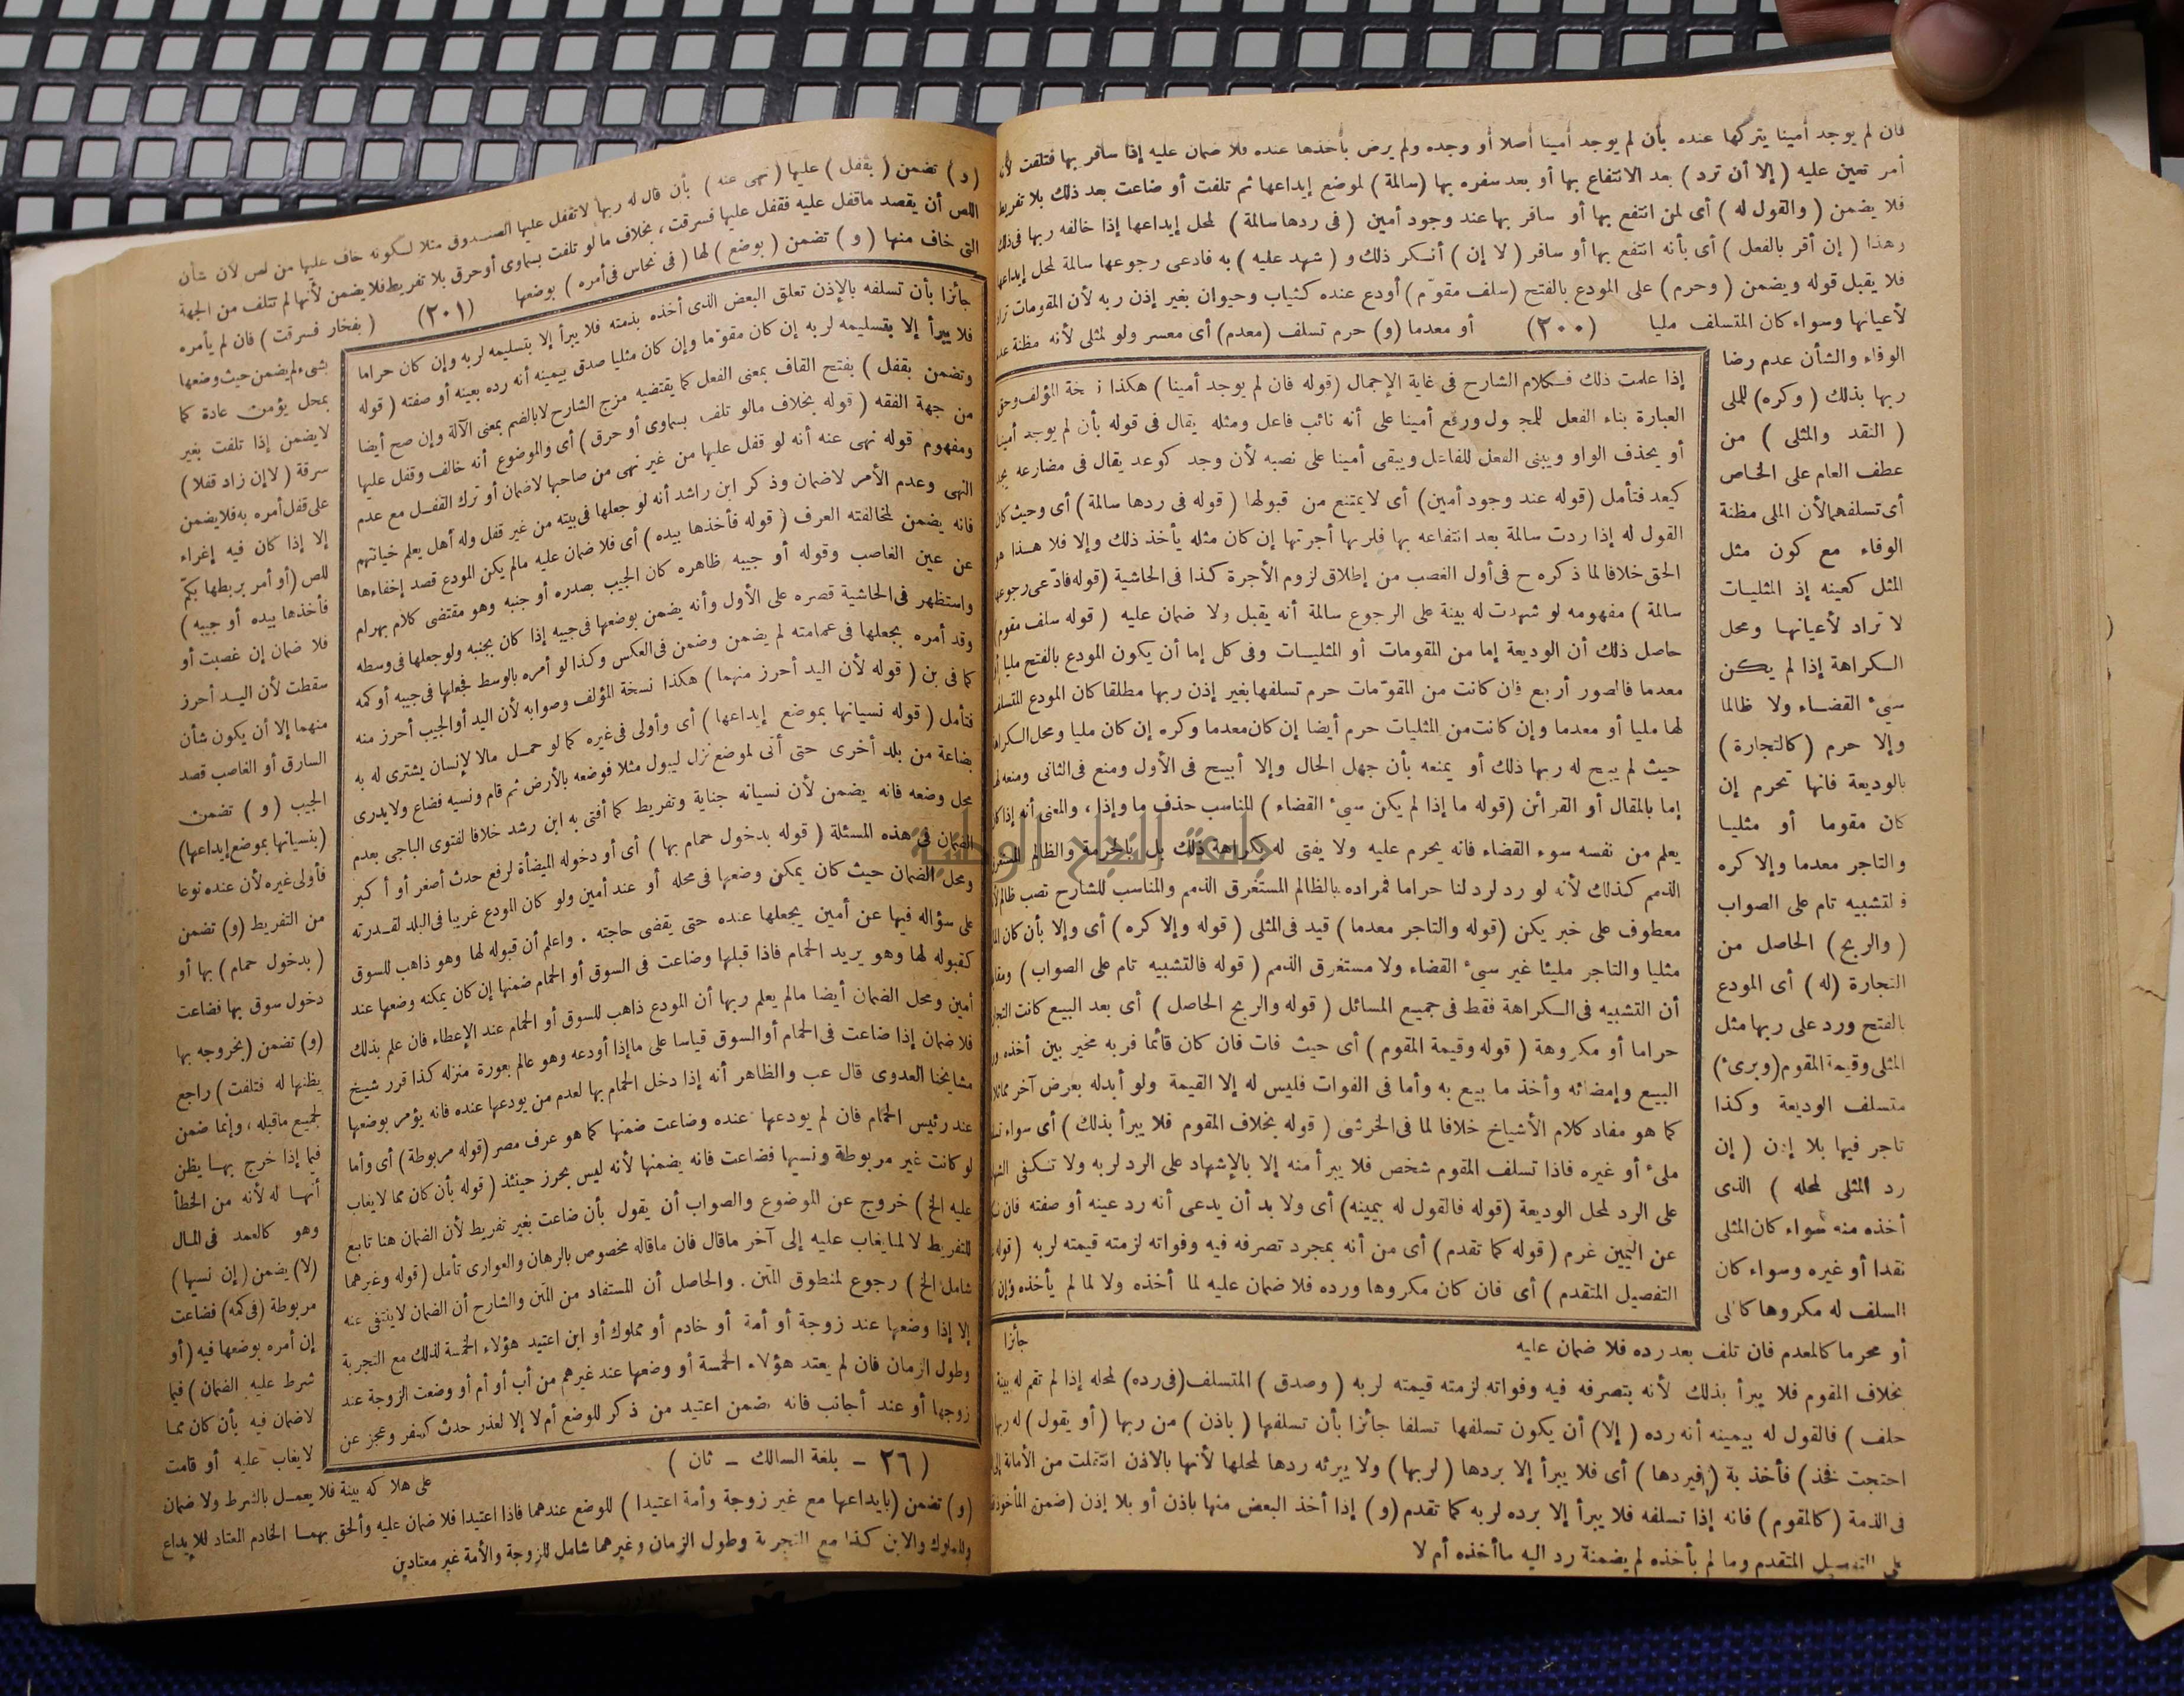 فان لم يوجد أمينا يتركها عنده بأن لم يوجد أمينا أصلا أو وجده ولم يرض بأخذها عنده فلا ضمان عليه إذا سافر بها فتلفت لأن
أمر تعين عليه ( إلا أن ترد ) بعد الانتفاع بها أو بعد سفره بها (سالمة) لموضع إيداعها ثم تلفت أو ضاعت بعد ذلك بلا تفريط
فلا يضمن ( والقول له ) أى لمن انتفع بها أو سافر بها عند وجود أمين ( فى ردها سالمة ) لمحل إيداعها إذا خالفه ربها فى ذلك
وهذا ( إن أقر بالفعل ) أى بأنه انتفع بها أو سافر ( لا إن ) أنكر ذلك و ( شهد عليه ) به فادعى رجوعها سالمة لمحل إيداعها
فلا يقبل قوله ويضمن ( وحرم ) على المودع بالفتح (سلف مقوّم) أودع عنده كثياب وحيوان بغير إذن ربه لأن المقومات تراد
لأعيانها وسواء كان المتسلف مليا (٢٠٠) أو معدما (و) حرم تسلف (معدم) أى معسر ولو لمثلى لأنه مظنة عدم
الوفاء والشأن عدم رضا
ربها بذلك ( وكره ) للملى
( النقد والمثلى ) من
عطف العام على الخاص
أى تسلفهما لأن الملى مظنة
الوفاء مع كون مثل
المثل كعينه إذ المثليات
لا تراد لأعيانها ومحل
الكراهة إذا لم يكن
سيء القضاء ولا ظالما
وإلا حرم (كالتجارة)
بالوديعة فانها تحرم إن
كان مقوما أو مثليا
والتاجر معدما وإلا كره
فالتشبيه تام على الصواب
( والربح ) الحاصل من
التجارة (له) أى المودع
بالفتح ورد على ربها مثل
المثلى وقيمة المقوم (وبرئ)
متسلف الوديعة وكذا
تاجر فيها بلا إذن ( إن
رد المثلى لمحله ) الذى
أخذه منه سواء كان المثلى
نقدا أو غيره وسواء كان
السلف له مكروها كالملى
إذا علمت ذلك فكلام الشارح فى غاية الإجمال (قوله فان لم يوجد أمينا) هكذا نسخة المؤلف وحق
العبارة بناء الفعل للمجهول ورفع أمينا على أنه نائب فاعل ومثله يقال فى قوله بأن لم يوجد أمينا
أو يحذف الواو ويبنى الفعل للفاعل ويبقى أمينا على نصبه لأن وجد كوعد يقال فى مضارعه يجد
كيعد فتأمل (قوله عند وجود أمين) أى لا يمتنع من قبولها ( قوله فى ردها سالمة ) أى وحيث كان
القول له إذا ردت سالمة بعد انتفاعه بها فلربها أجرتها إن كان مثله يأخذ ذلك وإلا فلا هذا هو
الحق خلافا لما ذكره ح فى أول الغصب من إطلاق لزوم الأجرة كذا فى الحاشية (قوله فادّعى رجوعها
سالمة ) مفهومه لو شهدت له بينة على الرجوع سالمة أنه يقبل ولا ضمان عليه ( قوله سلف مقوم
حاصل ذلك أن الوديعة إما من المقومات أو المثليات وفى كل إما أن يكون المودع بالفتح مليا أو
معدما فالصور أربع فان كانت من المقوّمات حرم تسلفها بغير إذن ربها مطلقا كان المودع المتسلف
لها مليا أو معدما وإن كانت من المثليات حرم أيضا إن كان معدما وكره إن كان مليا ومحل الكراهة
حيث لم يبح له ربها ذلك أو يمنعه بأن جهل الحال وإلا أبيح فى الأول ومنع فى الثانى ومنعه له
إما بالمقال أو القرائن (قوله ما إذا لم يكن سيء القضاء ) المناسب حذف ما وإذا ، والمعنى أنه إذا كان
يعلم من نفسه سوء القضاء فانه يحرم عليه ولا يفتى له بكراهة ذلك بل بالحرمة والظالم المستغرق
الذمم كذلك لأنه لو رد لرد لنا حراما فمراده بالظالم المستغرق الذمم والمناسب للشارح نصب ظالم لأنه
معطوف على خبر يكن (قوله والتاجر معدما) قيد فى المثلى ( قوله وإلا كره ) أى وإلا بأن كان المال
مثليا والتاجر مليئا غير سيء القضاء ولا مستغرق الذمم ( قوله فالتشبيه تام على الصواب )
أن التشبيه فى الكراهة فقط فى جميع المسائل ( قوله والربح الحاصل ) أى بعد البيع كانت التجارة
حراما أو مكروهة ( قوله وقيمة المقوم ) أى حيث فات فان كان قائما فربه مخير بين أخذه ورد
البيع وإمضائه وأخذ ما بيع به وأما فى الفوات فليس له إلا القيمة ولو أبدله بعرض آخر مماثلا
كما هو مفاد كلام الأشياخ خلافا لما فى الخرشى ( قوله بخلاف المقوم فلا يبرأ بذلك ) أى سواء
ملىء أو غيره فاذا تسلف المقوم شخص فلا يبرأ منه إلا بالإشهاد على الرد لربه ولا تكفى الشهادة
على الرد لمحل الوديعة (قوله فالقول له بيمينه) أى ولا بد أن يدعى أنه رد عينه أو صفته فان نكل
عن اليمين غرم ( قوله كما تقدم ) أى من أنه بمجرد تصرفه فيه وفواته لزمته قيمته لربه ( قوله
التفصيل المتقدم ) أى فان كان مكروها ورده فلا ضمان عليه لما أخذه ولا لما لم يأخذه وإن كان
جائزا
أو محرما كالمعدم فان تلف بعد رده فلا ضمان عليه
بخلاف المقوم فلا يبرأ بذلك لأنه بتصرفه فيه وفواته لزمته قيمته لربه ( وصدق ) المتسلف (فى رده) لمحله إذا لم تقم له بينة
حلف ) فالقول له بيمينه أنه رده ( إلا ) أن يكون تسلفها تسلفا جائزا بأن تسلفها ( باذن ) من ربها ( أو يقول ) له ربها
احتجت فخذ ) فأخذ بة ( فبردها ) أى فلا يبرأ إلا بردها ( لربها ) ولا يبرئه ردها لمحلها لأنها بالاذن انتقلت من الأمانة إلى
فى الذمة ( كالمقوم ) فانه إذا تسلفه فلا يبرأ إلا برده لربه كما تقدم (و) إذا أخذ البعض منها باذن أو بلا إذن (ضمن المأخوذ فقط
على التفصيل المتقدم وما لم يأخذه لم يضمنه رد اليه ما أخذه أم لا
(و) تضمن ( بقفل ) عليها ( نهى عنه ) بأن قال له ربها لا تقفل عليها الصندوق مثلا لكونه خاف عليها من لص لأن شأن
اللص أن يقصد ما قفل عليه فقفل عليها فسرقت ، بخلاف ما لو تلفت بسماوى أو حرق بلا تفريط فلا يضمن لأنها لم تتلف من الجهة
التى خاف منها ( و ) تضمن ( بوضع ) لها ( فى نحاس فى أمره ) بوضعها (٢٠١) ( بفخار فسرقت ) فان لم يأمره
بشىء لم يضمن حيث وضعها
بمحل يؤمن عادة كما
لا يضمن إذا تلفت بغير
سرقة ( لا إن زاد قفلا )
على قفل أمره به فلا يضمن
إلا إذا كان فيه إغراء
للص (أو أمر بربطها بكمّ
فأخذها بيده أو جيبه )
فلا ضمان إن غصبت أو
سقطت لأن اليد أحرز
منهما إلا أن يكون شأن
السارق أو الغاصب قصد
الجيب ( و ) تضمن
(بنسيانها بموضع إيداعها)
فأولى غيره لأن عنده نوعا
من التفريط (و) تضمن
( بدخول حمام ) بها أو
دخول سوق بها فضاعت
(و) تضمن (بخروجه بها
يظنها له فتلفت) راجع
لجميع ما قبله ، وإنما ضمن
فيما إذا خرج بها يظن
أنها له لأنه من الخطأ
وهو كالعمد فى المال
(لا) يضمن ( إن نسيها )
مربوطة (فى كمه) فضاعت
إن أمره بوضعها فيه ( أو
شرط عليه الضمان ) فيما
لا ضمان فيه بأن كان مما
لا يغاب عليه أو قامت
جائزا بأن تسلفه بالإذن تعلق البعض الذى أخذه بذمته فلا يبرأ إلا بتسليمه لربه وإن كان حراما
فلا يبرأ إلا بتسليمه لربه إن كان مقوّما وإن كان مثليا صدق بيمينه أنه رده بعينه أو صفته ( قوله
وتضمن بقفل ) بفتح القاف بمعنى الفعل كما يقتضيه مزج الشارح لا بالضم بمعنى الآلة وإن صح أيضا
من جهة الفقه ( قوله بخلاف مالو تلف بسماوى أو حرق ) أى والموضوع أنه خالف وقفل عليها
ومفهوم قوله نهى عنه أنه لو قفل عليها من غير نهى من صاحبها لا ضمان أو ترك القفل مع عدم
النهى وعدم الأمر لا ضمان وذكر ابن راشد أنه لو جعلها فى بيته من غير قفل وله أهل يعلم خيانتهم
فانه يضمن لمخالفته العرف ( قوله فأخذها بيده ) أى فلا ضمان عليه مالم يكن المودع قصد إخفاءها
عن عين الغاصب وقوله أو جيبه ظاهره كان الجيب بصدره أو جنبه وهو مقتضى كلام بهرام
واستظهر فى الحاشية قصره على الأول وأنه يضمن بوضعها فى جيبه إذا كان بجنبه ولو جعلها فى وسطه
وقد أمره بجعلها فى عمامته لم يضمن وضمن فى العكس وكذا لو أمره بالوسط فجعلها فى جيبه أو كمه
كما فى بن ( قوله لأن اليد أحرز منهما ) هكذا نسخة المؤلف وصوابه لأن اليد أو الجيب أحرز منه
فتأمل ( قوله نسيانها بموضع إيداعها ) أى وأولى فى غيره كما لو حمل مالا لإنسان يشترى له به
بضاعة من بلد أخرى حتى أتى لموضع نزل ليبول مثلا فوضعه بالأرض ثم قام ونسيه فضاع ولا يدرى
محل وضعه فانه يضمن لأن نسيانه جناية وتفريط كما أفتى به ابن رشد خلافا لفتوى الباجى بعدم
الضمان فى هذه المسئلة ( قوله بدخول حمام بها ) أى أو دخوله الميضأة لرفع حدث أصغر أو أكبر
ومحل الضمان حيث كان يمكن وضعها فى محله أو عند أمين ولو كان المودع غريبا فى البلد لقدرته
على سؤاله فيها عن أمين يجعلها عنده حتى يقضى حاجته . واعلم أن قبوله لها وهو ذاهب للسوق
كقبوله لها وهو يريد الحمام فاذا قبلها وضاعت فى السوق أو الحمام ضمنها إن كان يمكنه وضعها عند
أمين ومحل الضمان أيضا مالم يعلم ربها أن المودع ذاهب للسوق أو الحمام عند الإعطاء فان علم بذلك
فلا ضمان إذا ضاعت فى الحمام أو السوق قياسا على ما إذا أودعه وهو عالم بعورة منزله كذا قرر شيخ
مشايخنا العدوى قال عب والظاهر أنه إذا دخل الحمام بها لعدم من يودعها عنده فانه يؤمر بوضعها
عند رئيس الحمام فان لم يودعها عنده وضاعت ضمنها كما هو عرف مصر (قوله مربوطة) أى وأما
لو كانت غير مربوطة ونسيها فضاعت فانه يضمنها لأنه ليس بحرز حينئذ ( قوله بأن كان مما لا يغاب
عليه الخ ) خروج عن الموضوع والصواب أن يقول بأن ضاعت بغير تفريط لأن الضمان هنا تابع
للتفريط لا لما يغاب عليه إلى آخر ماقال فان ماقاله مخصوص بالرهان والعوارى تأمل (قوله وغيرهما
شامل الخ ) رجوع لمنطوق المتن . والحاصل أن المستفاد من المتن والشارح أن الضمان لا ينتفى عنه
إلا إذا وضعها عند زوجة أو أمة أو خادم أو مملوك أو ابن اعتيد هؤلاء الخمسة لذلك مع التجربة
وطول الزمان فان لم يعتد هؤلاء الخمسة أو وضعها عند غيرهم من أب أو أم أو وضعت الزوجة عند
زوجها أو عند أجانب فانه يضمن اعتيد من ذكر للوضع أم لا إلا لعذر حدث كسفر وعجز عن
( ٢٦ – بلغة السالك – ثان )
على هلاكه بينة فلا يعمل بالشرط ولا ضمان
(و) تضمن (بايداعها مع غير زوجة وأمة اعتيدا ) للوضع عندهما فاذا اعتيدا فلا ضمان عليه وألحق بهما الخادم المعتاد للإيداع
والمملوك والابن كذا مع التجربة وطول الزمان وغيرهما شامل للزوجة والأمة غير معتادين
جامعة النجاح الوطنية